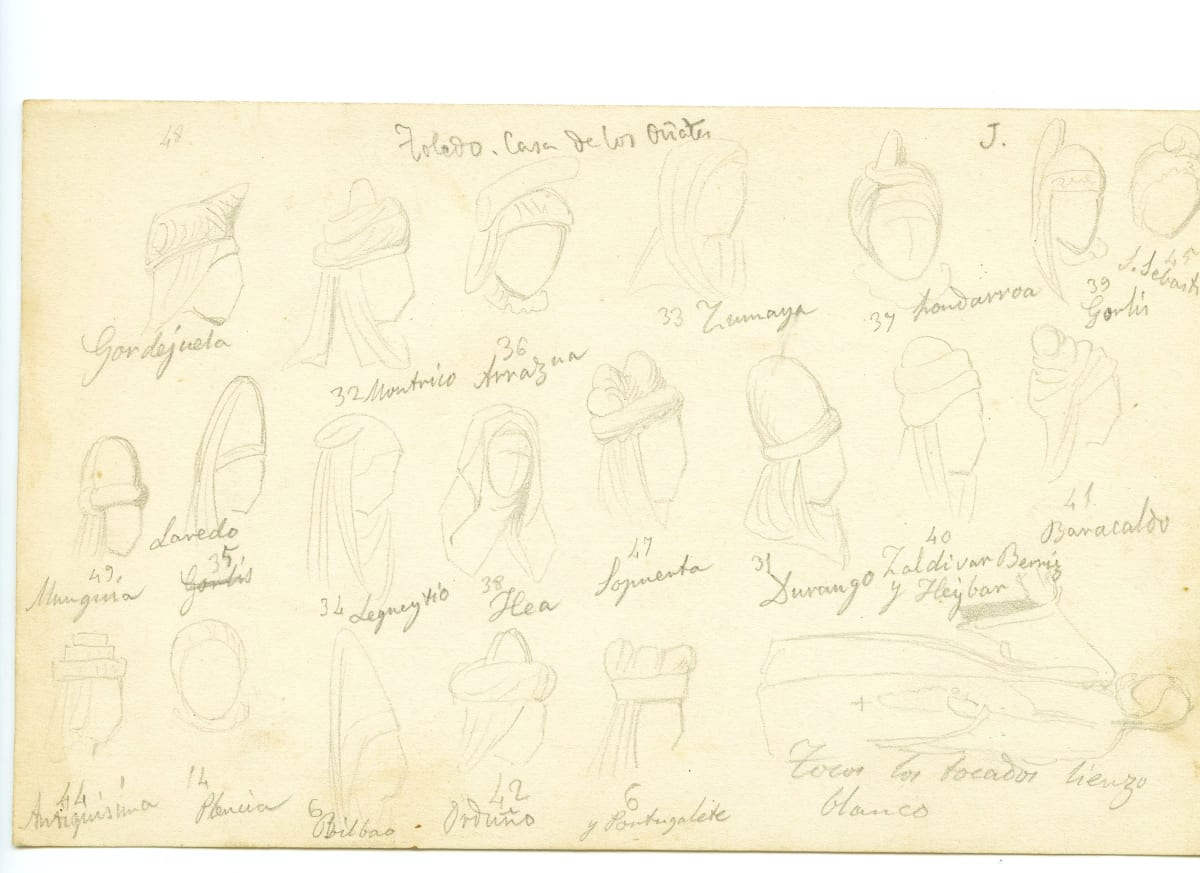 48
Toledo. Casa de los Oñates
J.
Gordejuela
32 Montrico
36
Arrazua
33 Zumaya
37 Hondarroa
39
Gorlis
45
S. Sebasti
49
Munguia
Laredo
35
Gorlis
34 Legueytio
38
Hea
47
Sopuerta
31
Durango
40
Zaldivar Berriz
y Heybar
41
Baracaldo
44
Antiquisima
14
Plencia
6
Bilbao
42
Orduño
6
y Portugalete
Tocos los tocados lienzo
blanco